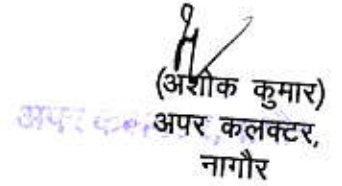 (अशोक कुमार)
अपर कलक्टर,
नागौर